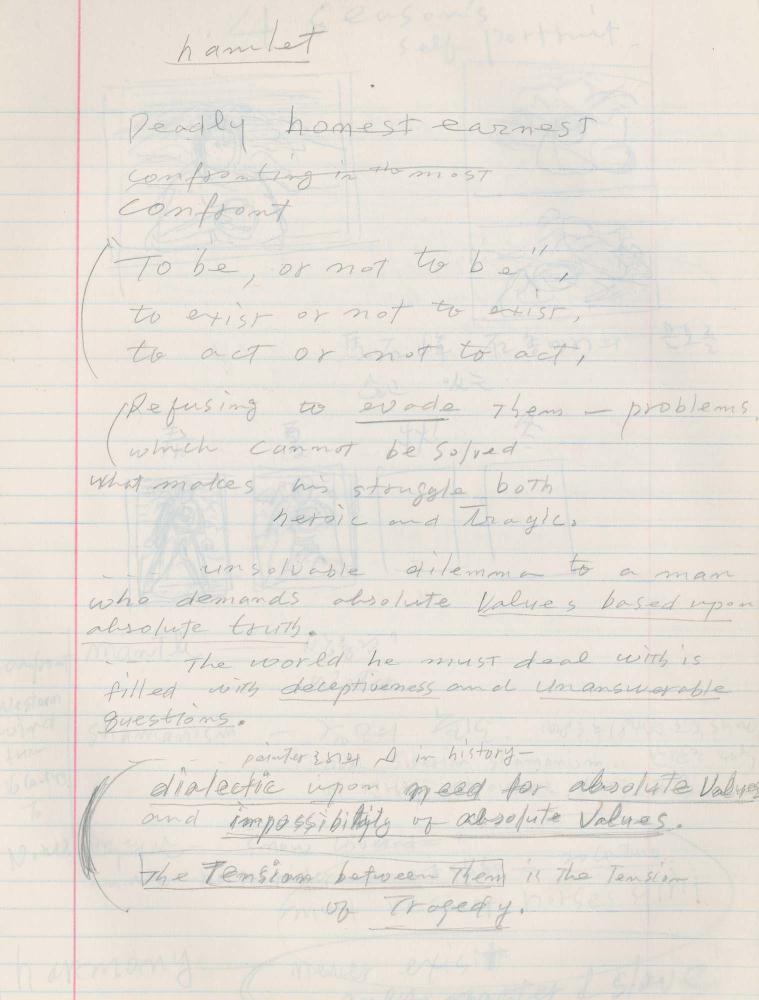 hamlet
Deadly honest earnest
confronting in the most
confront
To be, or not to be",
to exist or not to exist,
to act or not to act,
Refusing to evade Them — problems.
which cannot be solved
what makes his struggle both
heroic and Tragic.
unsolvable dilemma to a man
who demands absolute Values based upon
absolute truth.
The world he must deal with is
filled with deceptiveness and Unanswerable
questions.
painter in history —
dialectic upon need for absolute Values
and impossibility of absolute Values.
The Tension between Them is The Tension
of Tragedy.